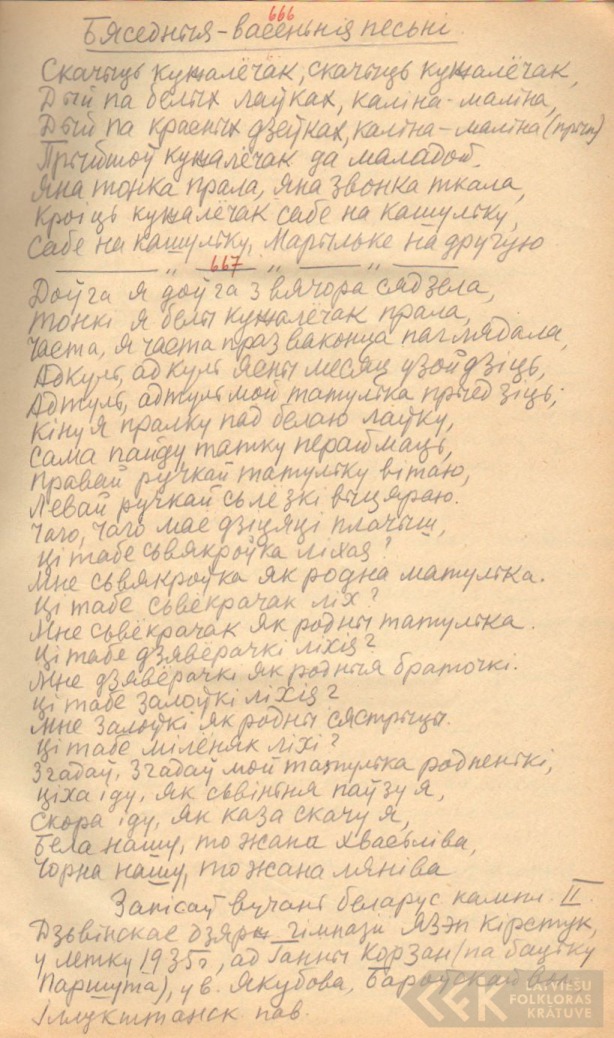 666
Бяседныя-васеньнія песьні.
Скачыць кужалёчак, скачыць кужалёчак,
Дый па белых лаўках, каліна-маліна,
Дый па красных дзеўках, каліна-маліна (прып)
Прыйшоў кужалёчак да маладой.
Яна тонка прала, яна звонка ткала,
Кроіць кужалёчак сабе на кашульку,
Сабе на кашульку, Марыльке на другую
667
Доўга я доўга з вячора сядзела,
Тонкі я белы кужалёчак прала,
Часта, я часта праз ваконца паглядала,
Адкуль, адкуль ясны месяц узойдзіць,
Адтуль, адтуль мой татулька прыедзіць;
Кіну я пралку пад белаю лаўку,
Сама пайду татку пераймаць,
Правай ручкай татульку вітаю,
Левай ручкай сьлёзкі выцяраю.
Чаго, чаго мае дзіцяці плачыш,
Ці табе сьвякроўка ліхая?
Мне сьвякроўка як родна матулька.
Ці табе сьвёкрачак ліх?
Мне сьвёкрачак як родны татулька.
Ці табе дзяверачкі ліхія?
Мне дзяверачкі як родныя браточкі.
Ці табе залоўкі ліхія?
Мне залоўкі як родны сястрыцы.
Ці табе міленяк ліхі?
Згадаў, згадаў мой татулька родненькі,
Ціха іду, як сьвіньня паўзу я,
Скора іду, як каза скачу я,
Бела нашу, то жана хвасьліва,
Чорна нашу, то жана ляніва
Запісаў вучань беларус кампл. II
Дзьвінскае дзярж гімназіі Язэп Кірстук,
у летку 1935г, ад Ганны Корзан (па бацьку
Паршута), у в. Якубова, Бароўскай вол.
Ілукштанск. пав.
LATVIEŠU
FOLKLORAS
KRĀTUVE